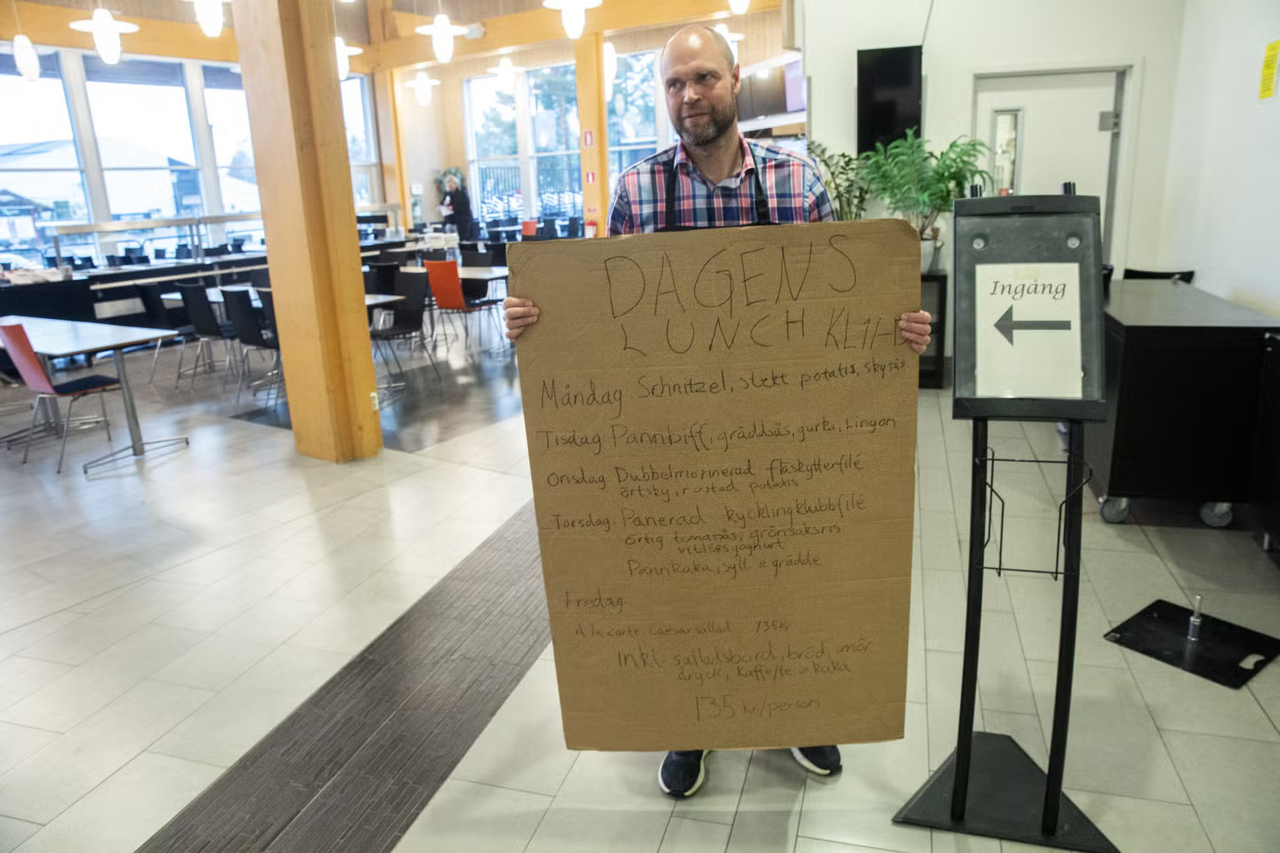 DAGENS
LUNCH KL 11-
Måndag Schnitzel, stekt potatis, skysås
Tisdag Pannbiff, gräddsås, gurka, Lingon
Onsdag Dubbelmarinerad fläskytterfilé
örtsky, rostad potatis
Torsdag Panerad kycklingklubbfilé
örtig tomatsås, grönsaksris
vitlöksyoghurt
Pannkaka, sylt & grädde
Fredag
A la carte: Caesarsallad 135kr
Inkl. salladsbord, bröd, smör
dryck, kaffe/te & kaka
135 kr/person
Ingång